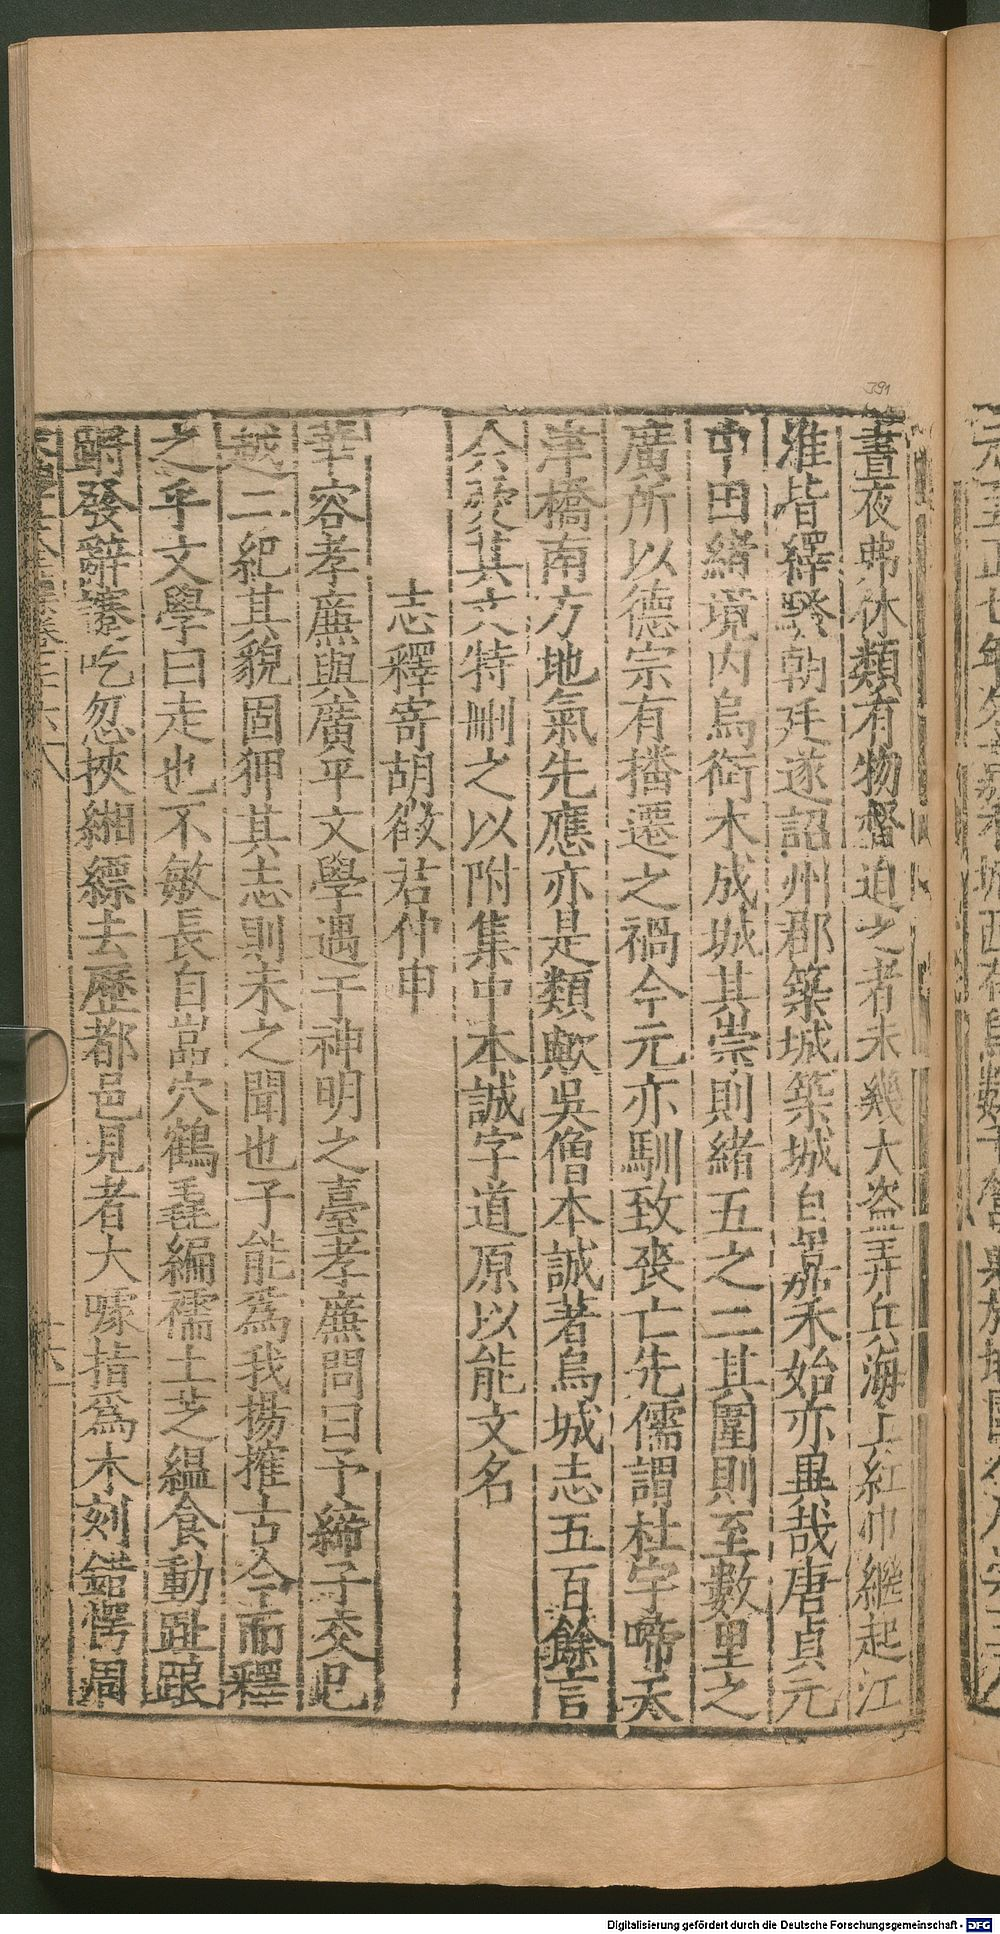 晝夜弗休類有物督迫之者未幾大盜弄兵海上紅巾繼起江
淮皆繹騷朝廷遂詔州郡築城築城自嘉禾始亦異哉唐貞元
中田緒境内烏銜木成城其崇則緒五之二其圍則至數里之
廣所以德宗有播遷之禍今元亦馴致喪亡先儒謂杜宇啼天
津橋南方地氣先應亦是類歟吳僧本誠著烏城志五百餘言
余愛其文特刪之以附集中本誠字道原以能文名
志釋寄胡徵君仲申
華容孝廉與廣平文學遇于神明之臺孝廉問曰予締子交巳
越二紀其貌固狎其志則未之聞也子能爲我揚搉古今而釋
之乎文學曰走也不敏長自嵓穴鶴毳編襦土芝緼食動趾踉
蹡發辭謇吃忽挾緗縹去歷都邑見者大噱指爲木刻錯愕周
391
Digitalisierung gefördert durch die Deutsche Forschungsgemeinschaft - DFG